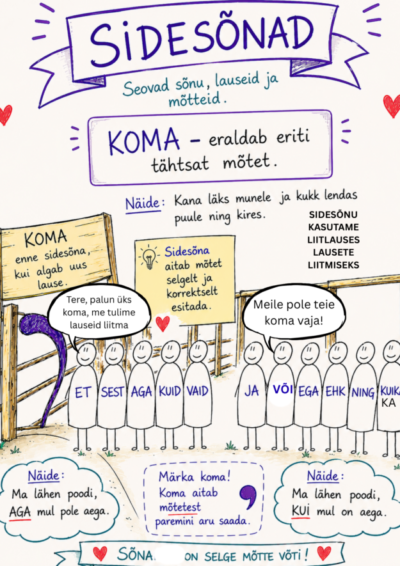 SIDESÕNAD
Seovad sõnu, lauseid ja
mõtteid.
KOMA – eraldab eriti
tähtsat mõtet.
Näide: Kana läks munele ja kukk lendas
puule ning kires.
SIDESÕNU
KASUTAME
LIITLAUSES
LAUSETE
LIITMISEKS
KOMA
enne sidesõna,
kui algab uus
lause.
Sidesõna
aitab mõtet
selgelt ja
korrektselt
esitada.
Tere, palun üks
koma, me tulime
lauseid liitma
Meile pole teie
koma vaja!
ET SEST AGA KUID VAID
JA VÕI EGA EHK NING KUIKA
KA
Näide:
Ma lähen poodi,
AGA mul pole aega.
Märka koma!
Koma aitab
mõtetest
paremini aru saada.
Näide:
Ma lähen poodi,
KUI mul on aega.
SÕNA ON SELGE MÕTTE VÕTI!